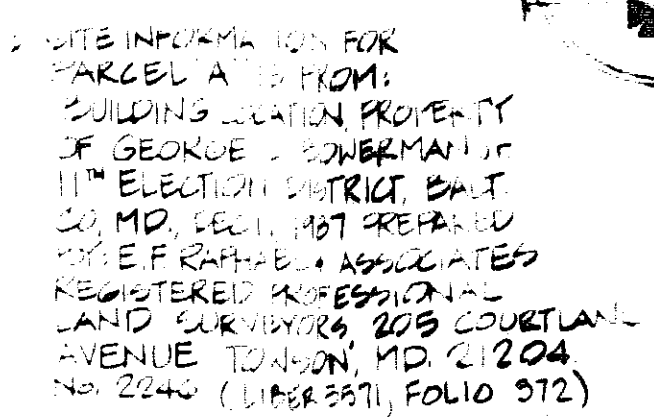 SITE INFORMATION FOR
PARCEL "A" IS FROM:
BUILDING LOCATION, PROPERTY
OF GEORGE BOWERMAN JR
11TH ELECTION DISTRICT, BALT.
CO, MD., DEC 1, 1987 PREPARED
BY: E.F. RAPHAEL & ASSOCIATES
REGISTERED PROFESSIONAL
LAND SURVEYORS, 205 COURTLAND
AVENUE TOWSON, MD. 21204
NO. 2246 (LIBER 3571, FOLIO 372)